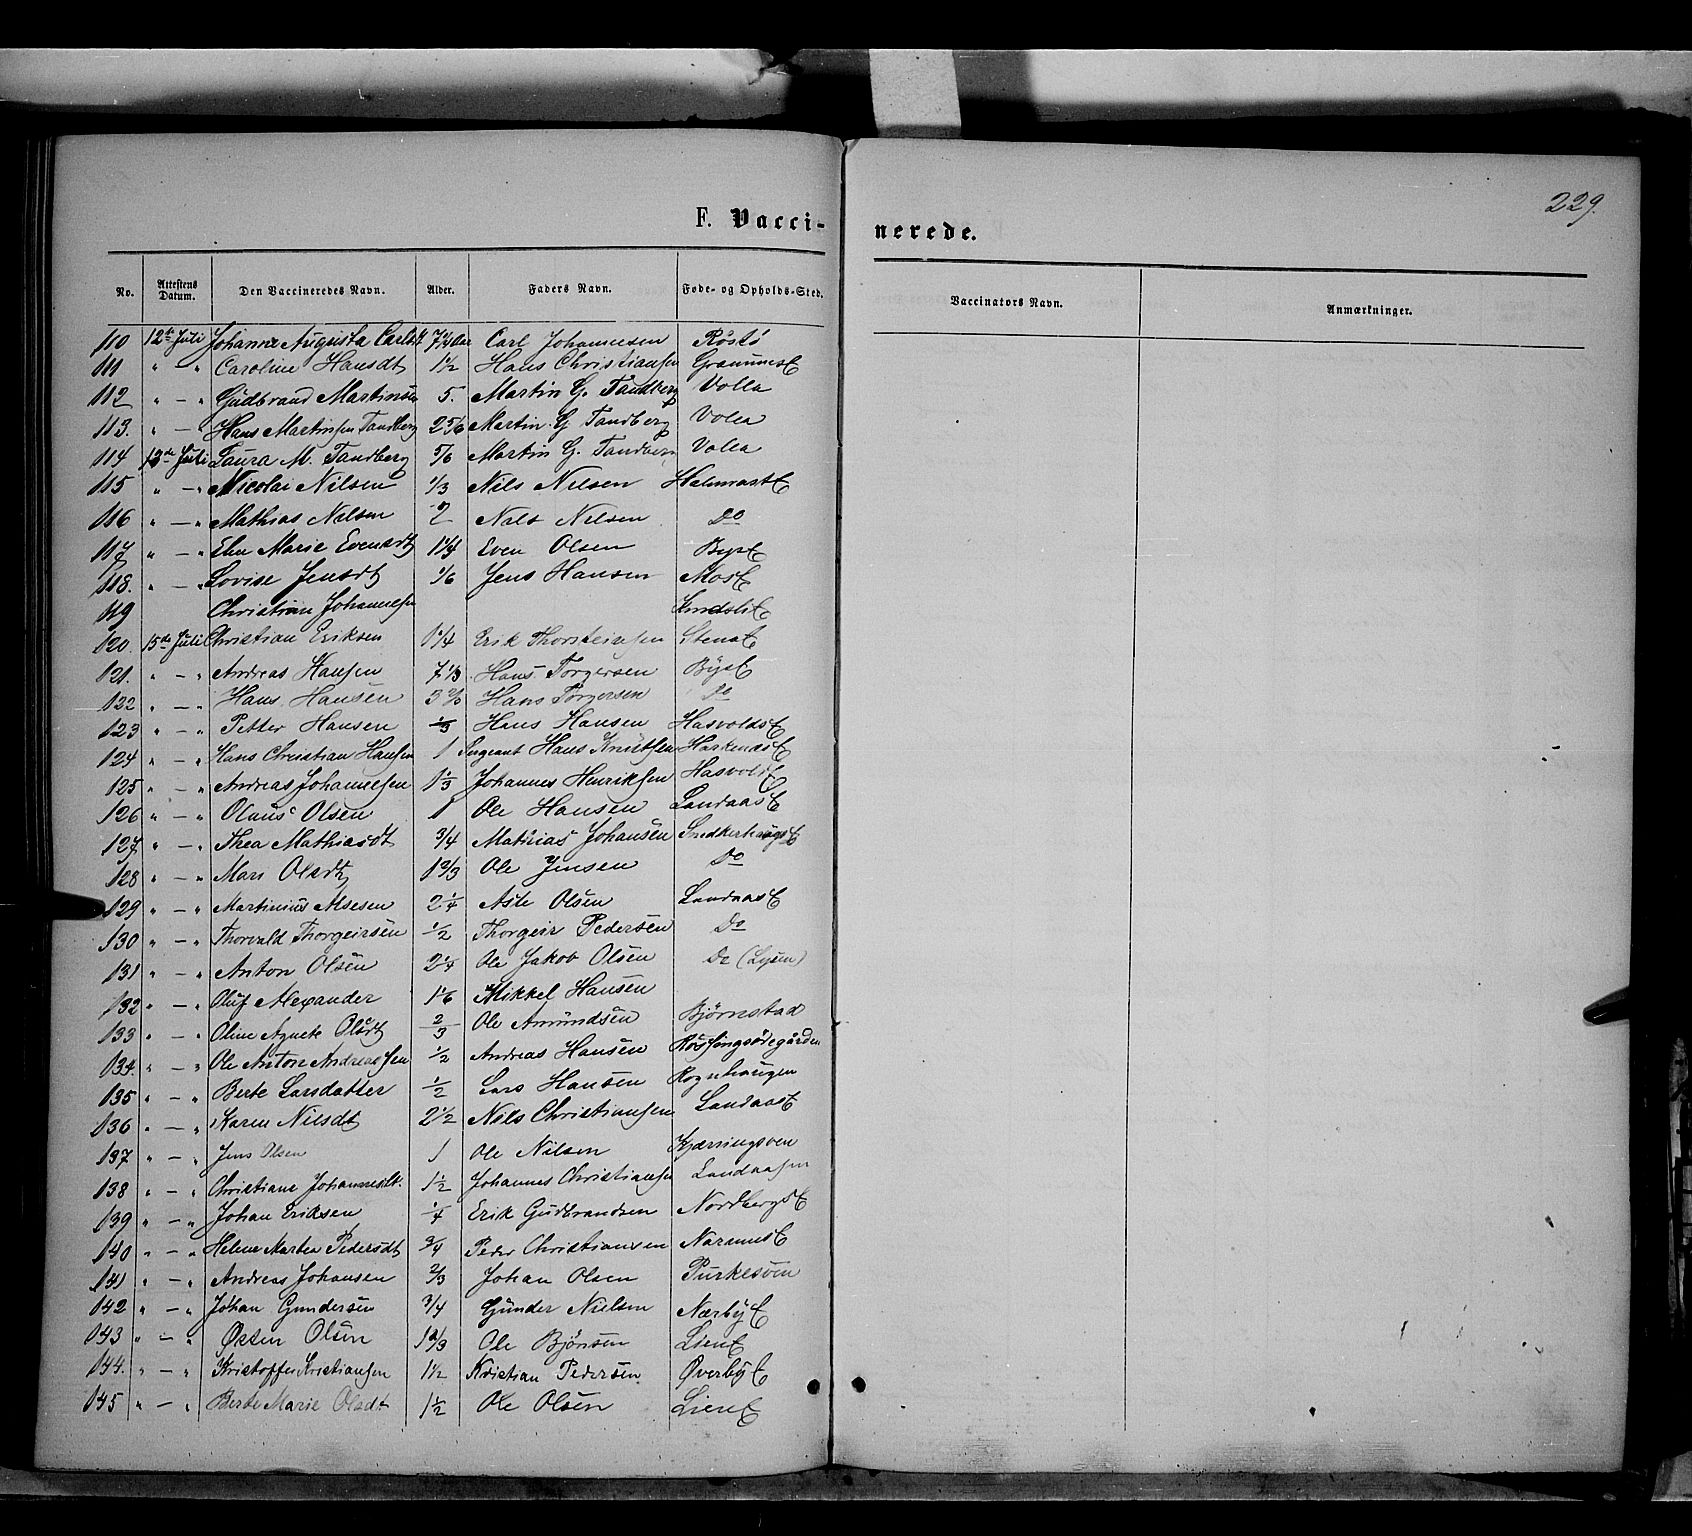 229.
F. Vacci-
nerede.
No. Attestens Datum. Den Vaccineredes Navn. Alder. Faders Navn. Føde- og Opholds-Sted. Vaccinators Navn. Anmærkninger.
110 12te Juli Johanne Augusta Carlsdt Carl Johannesen Røstø
111 " — " Caroline Hansdt 1½ Hans Christiansen
112 " — " Gudbrand Martinsen 5. Martin G. Tandberg Volla
113. " — " Hans Martinsen Tandberg 2 5/6 Martin G Tandberg Volla
114 Juli Laura M. Tandberg 5/6 Martin G. Tandberg Volla
115 " — " Nicolai Nilsen 1/3 Nils Nilsen
116 " — " Mathias Nilsen 7 Nils Nilsen Do
117 " — " Marie Evensdt 1¼ Even Olsen ByeE
118. " — " Lovise Jensdt 1/6 Jens Hansen MosE
119 Christian Johannesen
120. 15de Juli Christian Eriksen 1¼ Erik Thorsteinsen StensE
121. " — " Andreas Hansen 7 1/3 Hans Torgersen ByeE
122 " — " Hans Hansen Hans Torgersen Do
123 " — " Petter Hansen 1/3 Hans Hansen HasvoldsE
124 " — " Hans Christian Hansen 1 Sergeant Hans Knutsen
125 " — " Andreas Johannesen 1 1/3 Johannes Henriksen HasvoldE
126 " — " Olaus Olsen 1 Ole Hansen LandaasE
127 " — " Thea Mathiasdt 3/4 Mathias Johansen SnekkerhaugsE
128 " — " Mari Olsdt 1 2/3 Ole Jensen Do
129 " — " Martinius Olsen 2¼ Olsen LandaasE
130 " — " Thorvald Thorgeirsen ½ Thorgeir Pedersen Do
131 " — " Anton Olsen 2¼ Ole Jakob Olsen Do (Lysen)
132 " — " Oluf Alexander 1 1/6 Mikkel Hansen
133 " — " Oline Agnete Olsdt 2/3 Ole Amundsen Bjørnstad
134. " — " Ole Anton Andreassen ½ Andreas Hansen Røssingsødegården
135 " — " Berte Larsdatter ½ Lars Hansen Rognhaugen
136 " — " Karen Nilsdt 2½ Nils Christiansen LandaasE
137 " — " Jens Olsen 1 Ole Nilsen Kjærringsven
138 " — " Christiane Johannesdt. 1½ Johannes Christiansen Landaasen
139 " — " Johan Eriksen ¼ Erik Gudbrandsen NordbergsE
140 " — " Helene Martea Pedersdt ¾ Peder Christiansen NaramsE
141 " — " Andreas Johansen 2/3 Johan Olsen Purkesven
142 " — " Johan Gundersen ¾ Gunder Nielsen NærbyE
143 " — " Østen Olsen 1 2/3 Ole Bjønsen LienE
144. " — " Kristoffer Kristiansen 1½ Kristian Pedersen. ØverbyE
145 " — " Berte Marie Olsdt 1½ Ole Olsen LienE